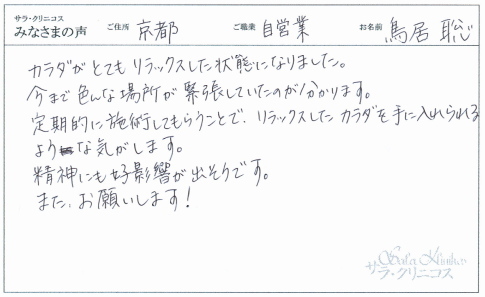 サラ・クリニコス
みなさまの声 ご住所 京都 ご職業 自営業 お名前 鳥居 聡
カラダがとてもリラックスした状態になりました。
今まで色んな場所が緊張していたのが分かります。
定期的に施術してもらうことで、リラックスしたカラダを手に入れられる
ような気がします。
精神にも好影響が出そうです。
また、お願いします!
Sala Klinikos
サラ・クリニコス